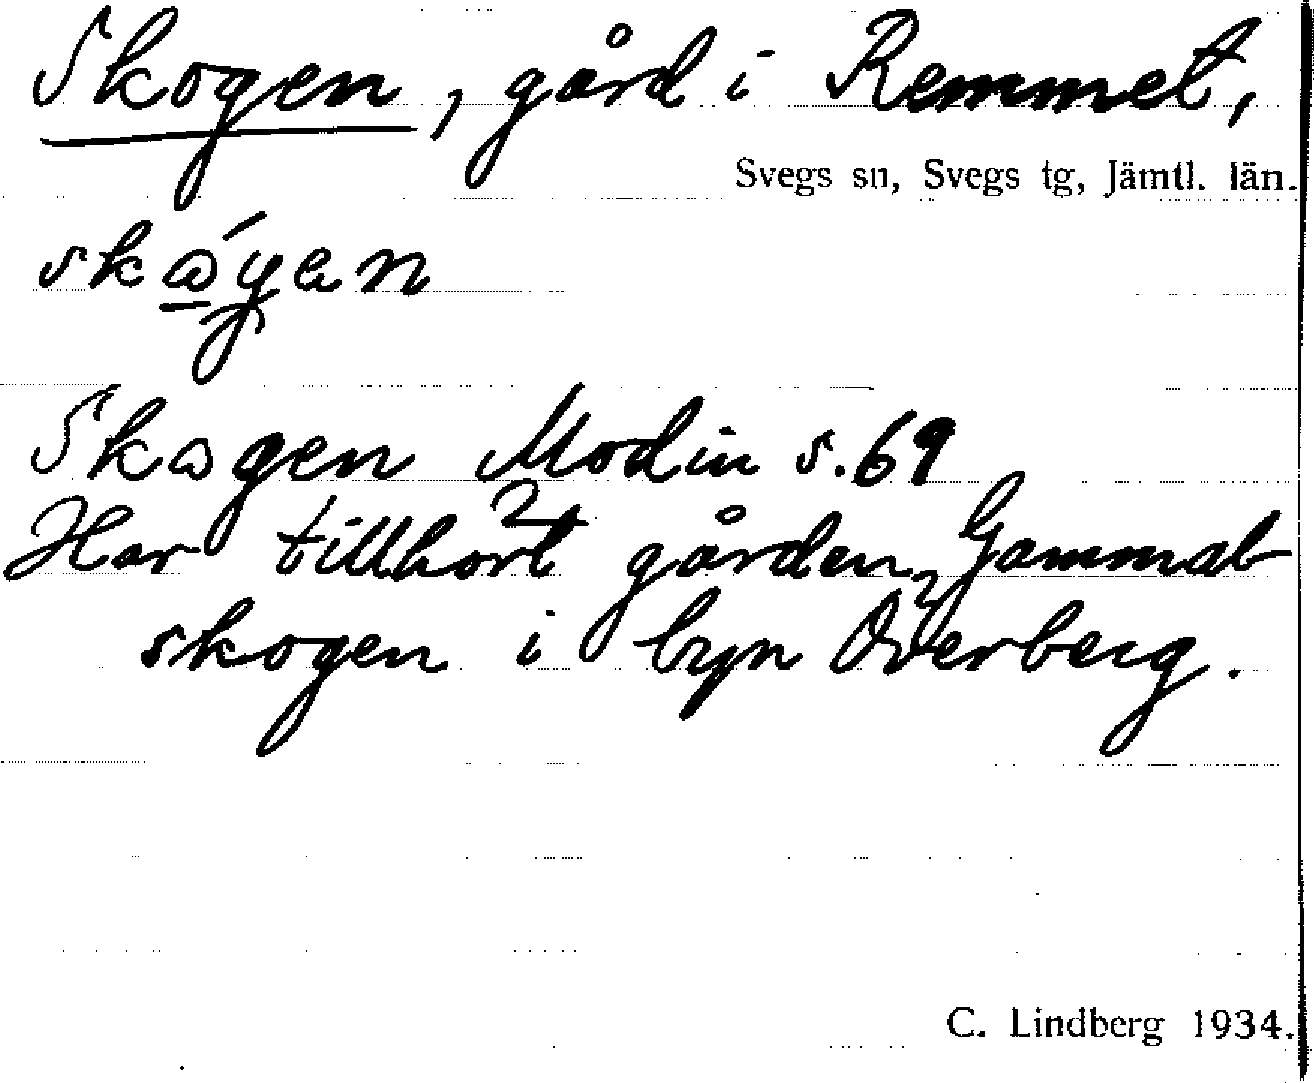 Skogen, gård i Remmet,
Svegs sn, Svegs tg, Jämtl. län.
Skogen Modin s. 69
Har tillhört gården Gammal-
skogen i byn Överberg.
C. Lindberg 1934.